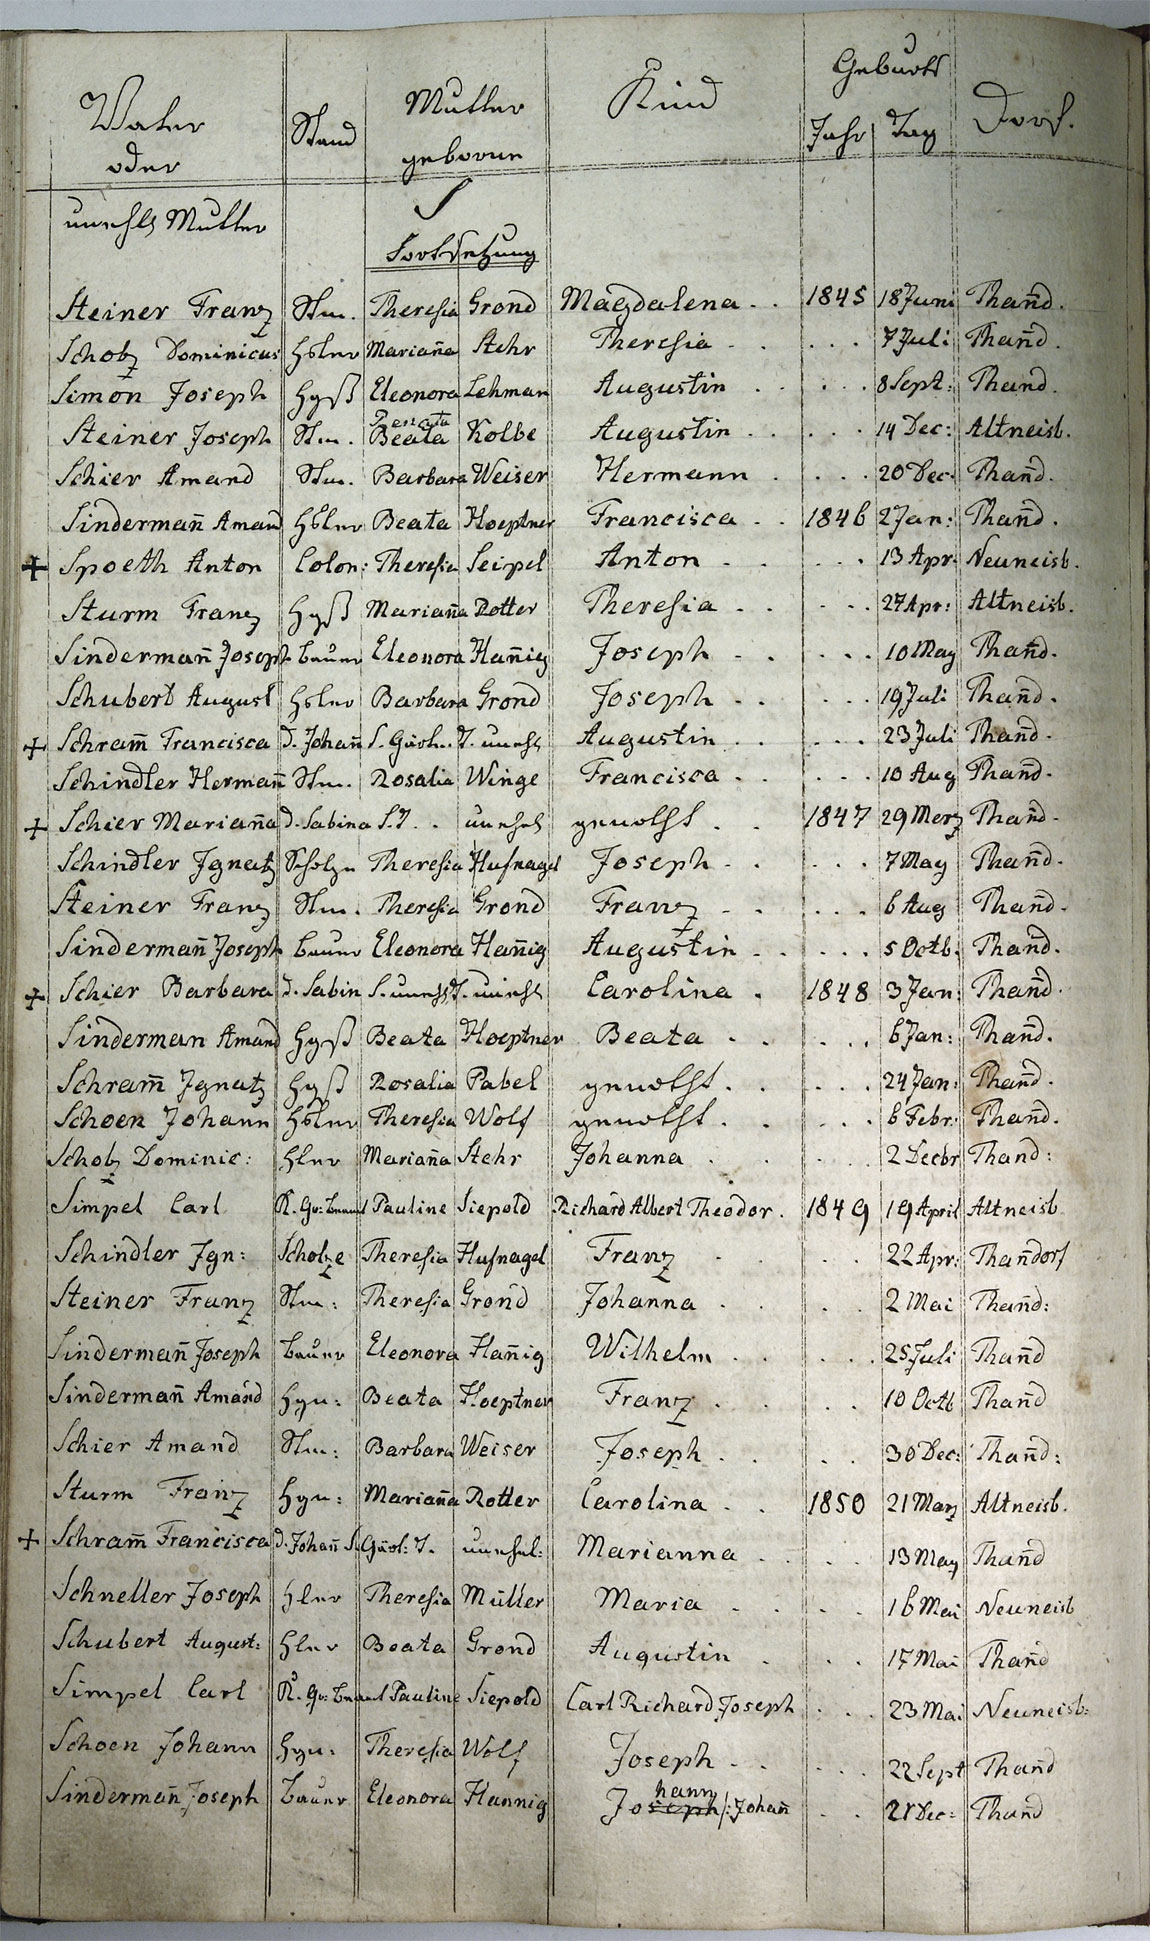 Geburts
Vater Stand Mutter Kind Jahr Tag Dorf.
oder geborne
unehl Mutter S
Fortsetzung
Steiner Franz Stm. Theresia Grond Magdalena . . 1845 18 Juni Thañd.
Scholz Dominicus Hsler Mariaña Stehr Theresia - . . . . 7 Juli Thañd.
Simon Joseph Hgß Eleonora Lehman Augustin . . . . . 8 Sept: Thand.
Renata
Steiner Joseph Stm. Beata Kolbe Augustin . . . . . 14 Dec: Altneisb.
Schier Amand Stm. Barbara Weiser Hermann . . . . 20 Dec. Thañd.
Sindermañ Amand Hsler Beata Hoeptner Francisca . . 1846 2 Jan: Thañd.
+ Spoeth Anton Colon: Theresia Seipel Anton - . . . . 13 Apr. Neuneisb.
Sturm Franz Hgß Mariaña Rotter Theresia . . . . . 27 Apr: Altneisb.
Sindermañ Joseph Bauer Eleonora Hañig Joseph - . . . . 10 May Thañd.
Schubert August Hsler Barbara Grond Joseph - . . . . 19 Juli Thañd.
+ Schram̃ Francisca d. Johañ S. Gärt.. T. unehl Augustin . . . . 23 Juli Thañd.
Schindler Hermañ Stm. Rosalia Winge Francisca . . . . . 10 Aug Thañd.
+ Schier Mariaña d. Sabina S. T. . unehel genothf . . 1847 29 Merz Thañd.
Schindler Jgnatz Scholze Theresia Hufnagel Joseph - . . . . 7 May Thañd.
Steiner Franz Stm. Theresia Grond Franz - . . . . 6 Aug Thañd.
Sindermañ Joseph Bauer Eleonora Hañig Augustin . . . . . 5 Octb. Thañd.
+ Schier Barbara d. Sabin S. unehl T. unehl Carolina . 1848 3 Jan: Thañd.
Sinderman Amand Hgß Beata Hoeptner Beata . . . . . 6 Jan: Thañd.
Schram̃ Jgnatz Hgß Rosalia Pabel genothf . . . . . 24 Jan: Thañd.
Schoen Johann Hsler Theresia Wolf genothf . . . . . 6 Febr: Thañd.
Scholz Dominic: Hler Mariaña Stehr Johanna . . . . . 2 Decbr Thand:
Simpel Carl Pauline Siepold Richard Albert Theodor. 1849 19 April Altneisb
Schindler Jgn: Scholze Theresia Hufnagel Franz . . . 22 Apr: Thañdorf
Steiner Franz Stm: Theresia Grond Johanna . . . . 2 Mai Thañd:
Sindermañ Joseph Bauer Eleonora Hañig Wilhelm . . . . . 25 Juli Thañd
Sindermañ Amand Hgn: Beata Hoeptner Franz . . . . 10 Octb Thañd
Schier Amand Stm: Barbara Weiser Joseph . . . . 30 Dec: Thañd:
Sturm Franz Hgn: Mariaña Rotter Carolina . . 1850 21 Marz Altneisb.
+ Schram̃ Francisca d. Johañ S. Gärt: T. unehel: Marianna . . . . 13 May Thañd
Schneller Joseph Hler Theresia Müller Maria . . . . 16 Mai Neuneisb
Schubert August: Hler Beata Grond Augustin . . . 17 Mai Thañd
Simpel Carl Pauline Siepold Carl Richard Joseph . . . 23 Mai Neuneisb:
Schoen Johann Hgn: Theresia Wolf Joseph . . . . . 22 Sept Thañd
hann
Sindermañ Joseph Bauer Eleonora Hannig Joseph /: Johañ . . 21 Dec: Thañd